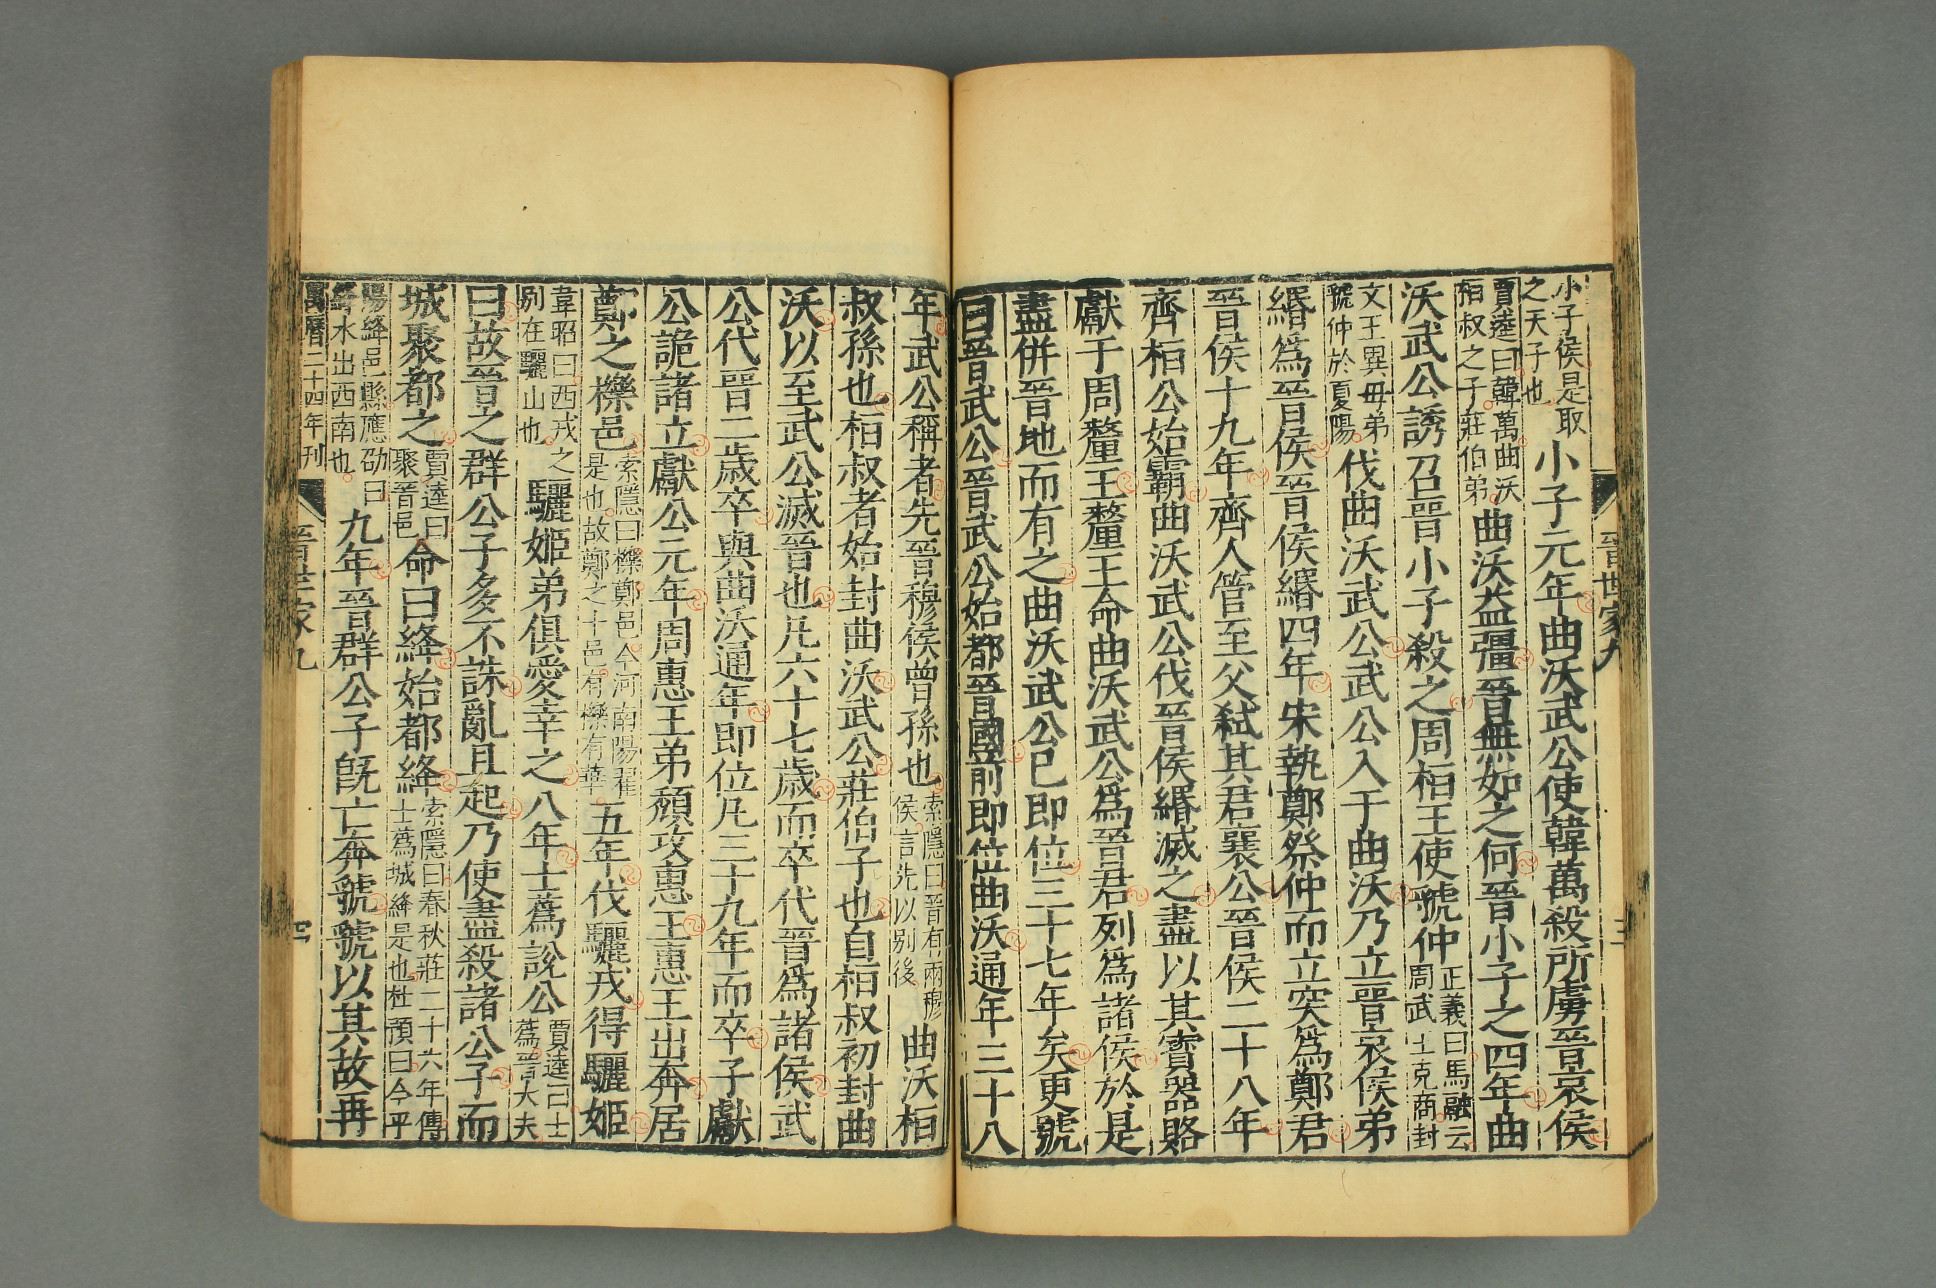 晉世家九
三
小子侯是取
之天子也
小子元年曲沃武公使韓萬殺所虜晉哀侯
賈逵曰韓萬曲沃
桓叔之子莊伯弟
曲沃益彊晉無如之何晉小子之四年曲
沃武公誘召晉小子殺之周桓王使虢仲
正義曰馬融云
周武王克商封
文王異母弟
虢仲於夏陽
伐曲沃武公武公入于曲沃乃立晉哀侯弟
緡爲晉侯晉侯緡四年宋執鄭祭仲而立突爲鄭君
晉侯十九年齊人管至父弒其君襄公晉侯二十八年
齊桓公始霸曲沃武公伐晉侯緡滅之盡以其寶器賂
獻于周釐王釐王命曲沃武公爲晉君列爲諸侯於是
盡併晉地而有之曲沃武公已即位三十七年矣更號
曰晉武公晉武公始都晉國前即位曲沃通年三十八
年武公稱者先晉穆侯曾孫也
索隱曰晉有兩穆
侯言先以別後
曲沃桓
叔孫也桓叔者始封曲沃武公莊伯子也自桓叔初封曲
沃以至武公滅晉也凡六十七歲而卒代晉爲諸侯武
公代晉二歲卒與曲沃通年即位凡三十九年而卒子獻
公詭諸立獻公元年周惠王弟頹攻惠王惠王出奔居
鄭之櫟邑
索隱曰櫟鄭邑今河南陽翟
是也故鄭之十邑有櫟有華
五年伐驪戎得驪姬
韋昭曰西戎之
別在驪山也
驪姬弟俱愛幸之八年士蔿說公
賈逵曰士
蔿晉大夫
曰故晉之群公子多不誅亂且起乃使盡殺諸公子而
城聚都之
賈逵曰
聚晉邑
命曰絳始都絳
索隱曰春秋莊二十六年傳
士蔿城絳是也杜預曰今平
陽絳邑縣應劭曰
絳水出西南也
九年晉群公子既亡奔虢虢以其故再
萬曆二十四年刊
晉世家九
四